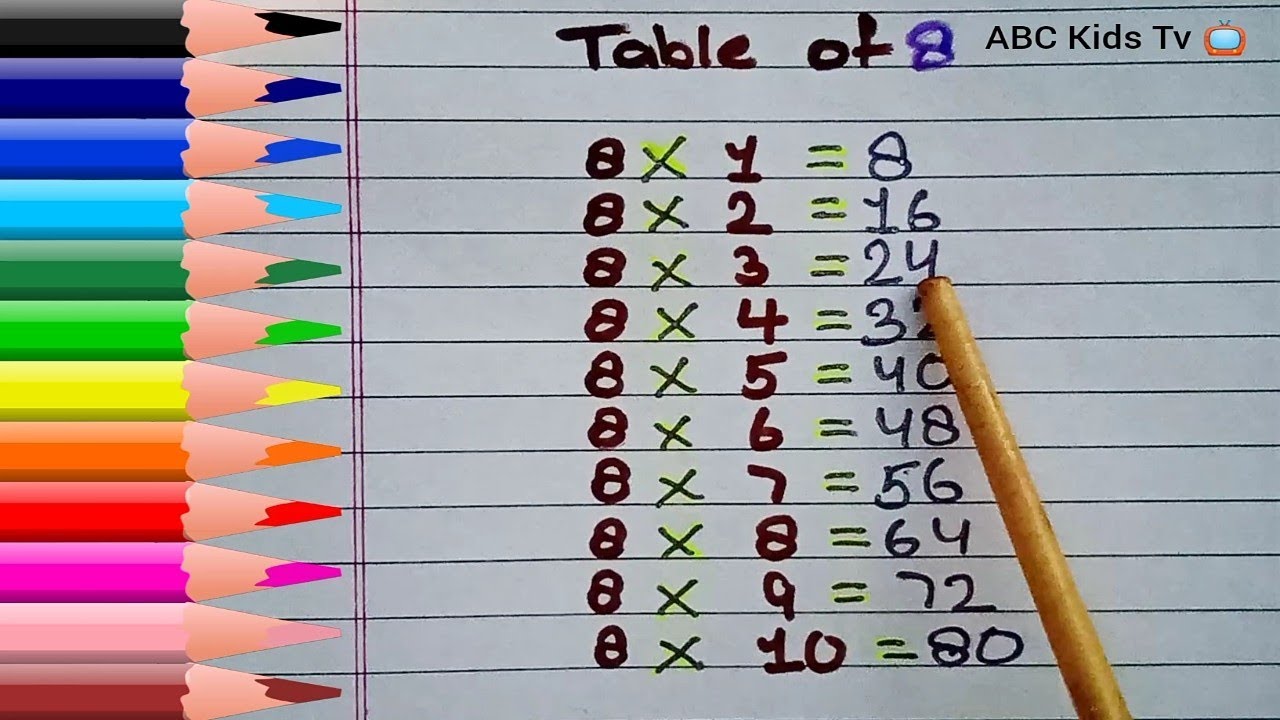 Table of 8 ABC Kids Tv
8 × 1 = 8
8 × 2 = 16
8 × 3 = 24
8 × 4 = 32
8 × 5 = 40
8 × 6 = 48
8 × 7 = 56
8 × 8 = 64
8 × 9 = 72
8 × 10 = 80